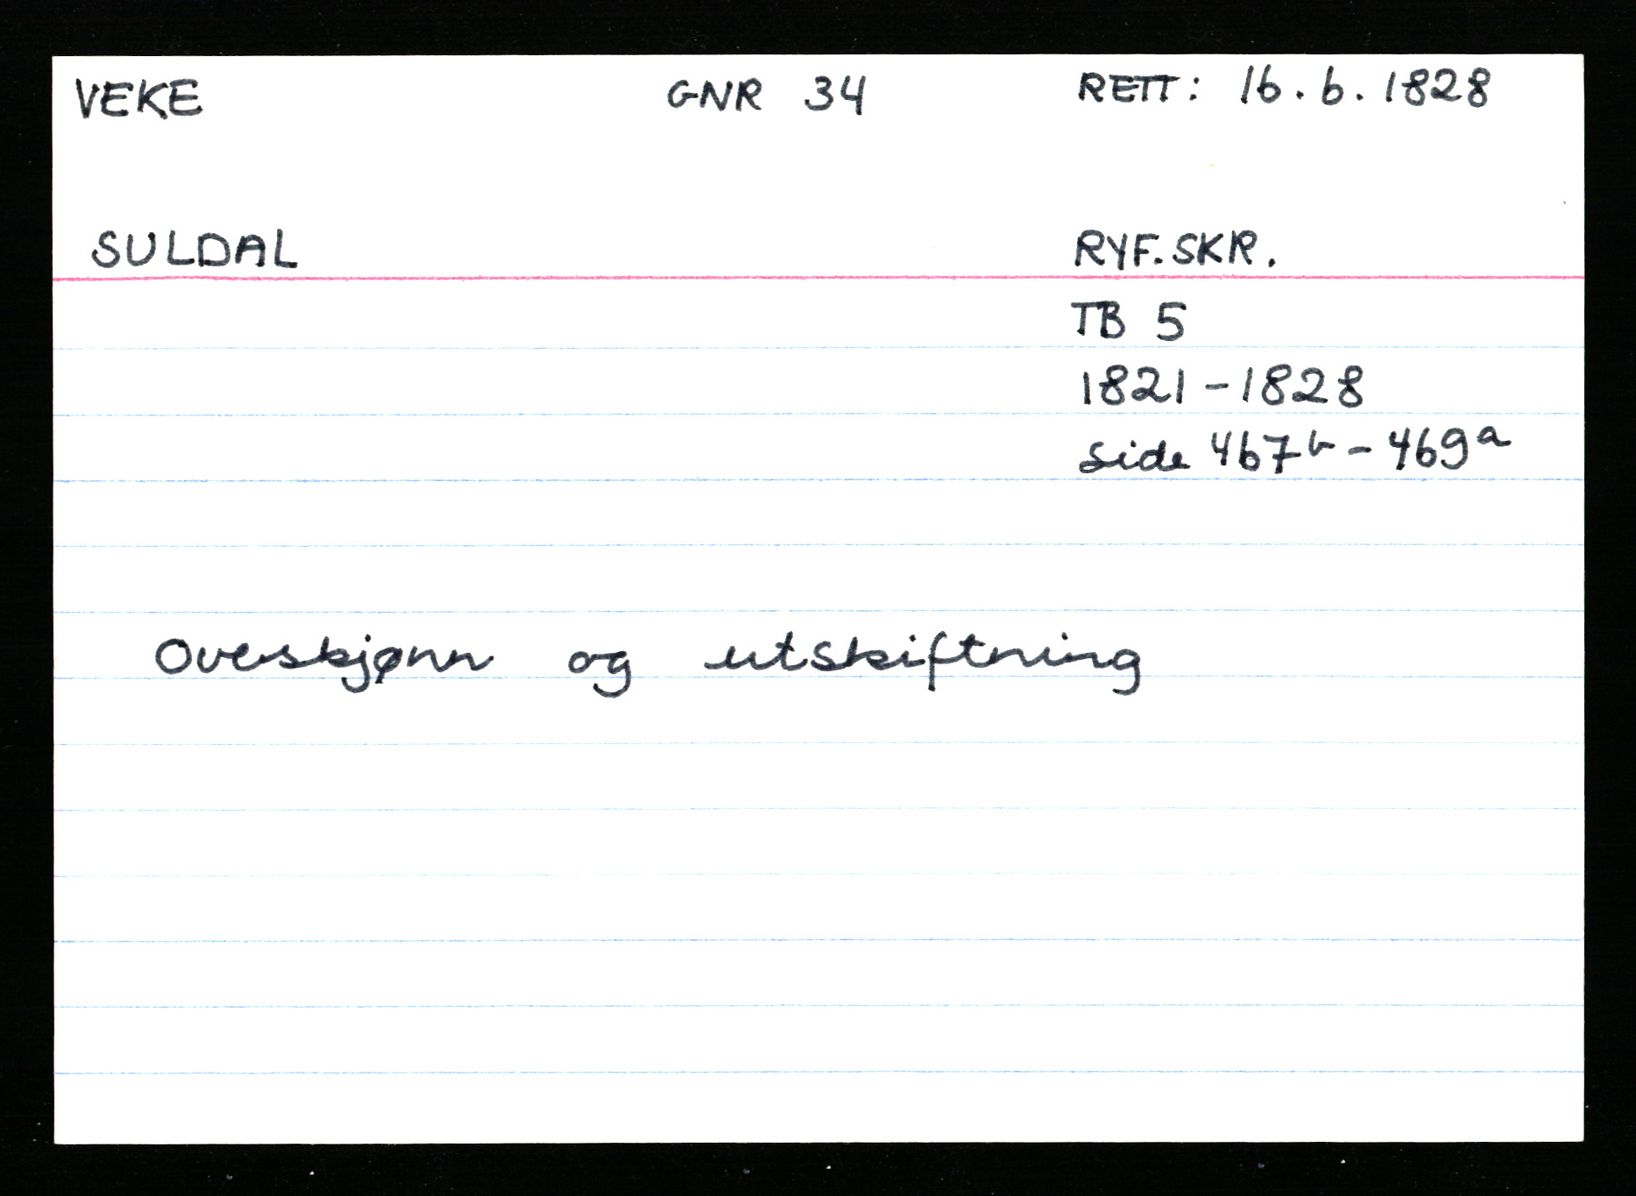 VEKE GNR 34 RETT: 16.6.1828
SULDAL RYF.SKR.
TB 5
1821-1828
side 467b - 469a
Overskjønn og utskiftning